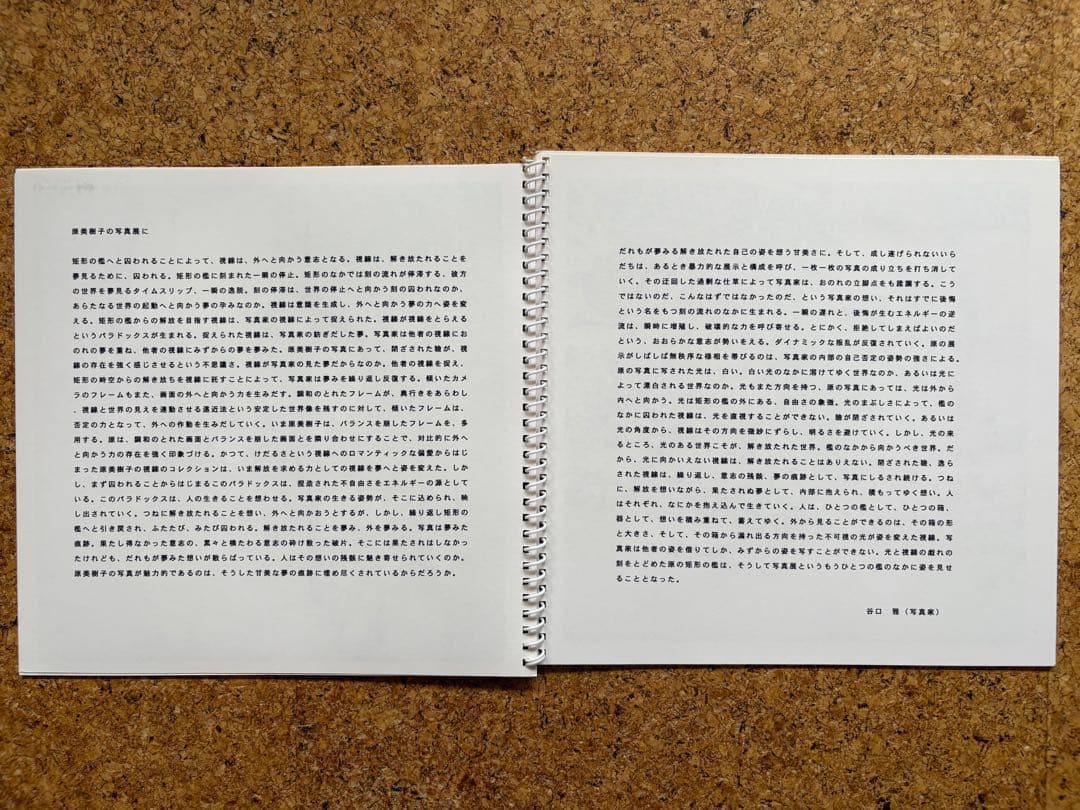 原美樹子の写真展に
矩形の檻へと囚われることによって、視線は、外へと向かう意志となる。視線は、解き放たれることを
夢見るために、囚われる。矩形の檻に刻まれた一瞬の停止。矩形のなかでは刻の流れが停滞する、彼方
の世界を夢見るタイムスリップ、一瞬の逸脱。刻の停滞は、世界の停止へと向かう刻の囚われなのか、
あらたなる世界の起動へと向かう夢の孕みなのか。視線は意識を生成し、外へと向かう夢の力へ姿を変
える。矩形の檻からの解放を目指す視線は、写真家の視線によって捉えられた。視線が視線をとらえる
というパラドックスが生まれる。捉えられた視線は、写真家の紡ぎだした夢。写真家は他者の視線にお
のれの夢を重ね、他者の視線にみずからの夢を夢みた。原美樹子の写真にあって、閉ざされた瞼が、視
線の存在を強く感じさせるという不思議さ。視線が写真家の見た夢だからなのか。他者の視線を捉え、
矩形の時空からの解き放ちを視線に託すことによって、写真家は夢みを繰り返し反復する。傾いたカメ
ラのフレームもまた、画面の外へと向かう力を生みだす。調和のとれたフレームが、奥行きをあらわし
、視線と世界の見えを連動させる遠近法という安定した世界像を残すのに対して、傾いたフレームは、
否定の力となって、外への作動を生みだしていく。いま原美樹子は、バランスを崩したフレームを、多
用する。原は、調和のとれた画面とバランスを崩した画面とを隣り合わせにすることで、対比的に外へ
と向かう力の存在を強く印象づける。かつて、けだるさという視線へのロマンティックな偏愛からはじ
まった原美樹子の視線のコレクションは、いま解放を求める力としての視線を夢へと姿を変えた。しか
し、まず囚われることからはじまるこのパラドックスは、捏造された不自由さをエネルギーの源として
いる。このパラドックスは、人の生きることを想わせる。写真家の生きる姿勢が、そこに込められ、映
し出されていく。つねに解き放たれることを想い、外へと向かおうとするが、しかし、繰り返し矩形の
檻へと引き戻され、ふたたび、みたび囚われる。解き放たれることを夢み、外を夢みる。写真は夢みた
痕跡。果たし得なかった意志の、累々と横たわる意志の砕け散った破片。そこには果たされはしなかっ
たけれども、だれもが夢みた想いが散らばっている。人はその想いの残骸に魅き寄せられていくのか。
原美樹子の写真が魅力的であるのは、そうした甘美な夢の痕跡に埋め尽くされているからだろうか。
だれもが夢みる解き放たれた自己の姿を想う甘美さに。そして、成し遂げられないいら
だちは、あるとき暴力的な展示と構成を呼び、一枚一枚の写真の成り立ちを打ち消して
いく。その迂回した過剰な仕草によって写真家は、おのれの立脚点をも蹂躙する。こう
ではないのだ、こんなはずではなかったのだ、という写真家の想い、それはすでに後悔
という名をもつ刻の流れのなかに生まれる。一瞬の遅れと、後悔が生むエネルギーの逆
流は、瞬時に増殖し、破壊的な力を呼び寄せる。とにかく、拒絶してしまえばよいのだ
という、おおらかな意志が勢いをえる。ダイナミックな叛乱が反復されていく。原の展
示がしばしば無秩序な様相を帯びるのは、写真家の内部の自己否定の姿勢の強さによる。
原の写真に写された光は、白い。白い光のなかに溶けてゆく世界なのか、あるいは光に
よって漂白される世界なのか。光もまた方向を持つ、原の写真にあっては、光は外から
内へと向かう。光は矩形の檻の外にある、自由さの象徴。光のまぶしさによって、檻の
なかに囚われた視線は、光を直視することができない。瞼が閉ざされていく。あるいは
光の角度から、視線はその方向を微妙にずらし、明るさを避けていく。しかし、光の来
るところ、光のある世界こそが、解き放たれた世界。檻のなかから向かうべき世界。だ
から、光に向かいえない視線は、解き放たれることはありえない。閉ざされた瞼、逸ら
された視線は、繰り返し、意志の残骸、夢の痕跡として、写真にしるされ続ける。つね
に、解放を想いながら、果たされぬ夢として、内部に抱えられ、積もってゆく想い。人
はそれぞれ、なにかを抱え込んで生きていく。人は、ひとつの檻として、ひとつの箱、
器として、想いを積み重ねて、蓄えてゆく。外から見ることができるのは、その箱の形
と大きさ、そして、その箱から漏れ出る方向を持った不可視の光が姿を変えた視線。写
真家は他者の姿を借りてしか、みずからの姿を写すことができない。光と視線の戯れの
刻をとどめた原の矩形の檻は、そうして写真展というもうひとつの檻のなかに姿を見せ
ることとなった。
谷口　雅（写真家）